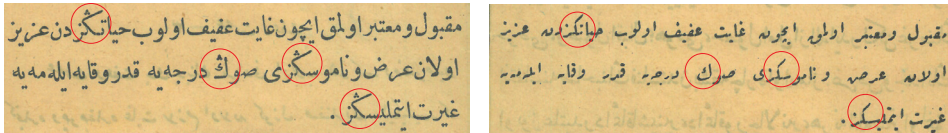 مقبول و معتبر اولمق ایچون غایت عفیف اولوب حیاتڭزدن عزیز
اولان عرض و ناموسڭزی صوڭ درجه یه قدر وقایه ایله مه یه
غیرت ایتملیسڭز .
مقبول و معتبر اولمق ایچون غایت عفیف اولوب حیاتكزدن عزیز
اولان عرض و ناموسكزی صوك درجه یه قدر وقایه ایله مه یه
غیرت ایتملیسكز .